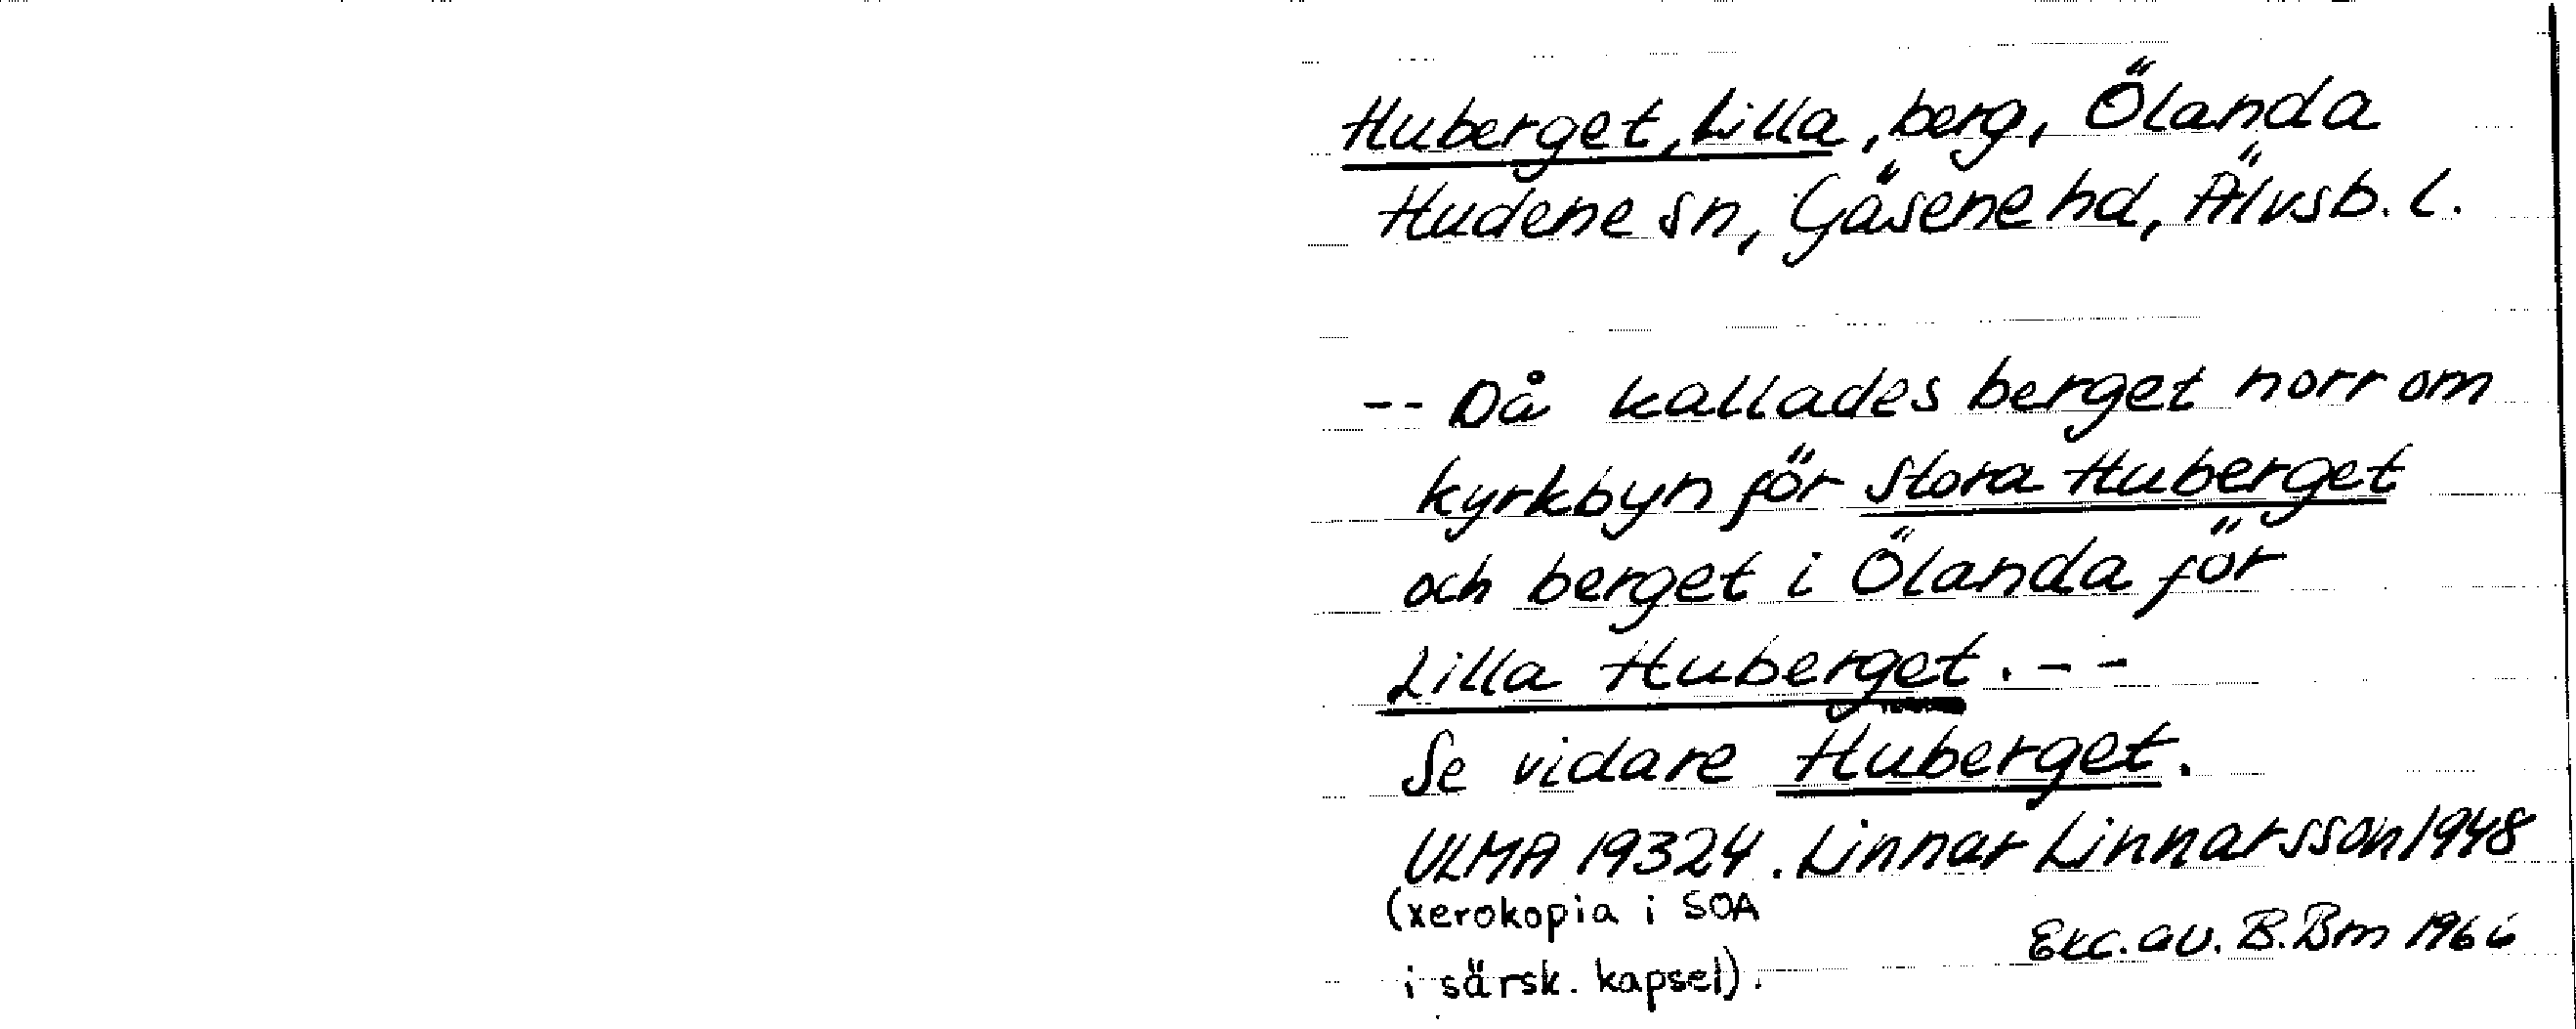 Huberget, Lilla, berg, Ölanda
Hudene sn, Gäsene hd, Älvsb. l.
-- Då kallades berget norr om
kyrkbyn för Stora Huberget
och berget i Ölanda för
Lilla Huberget. --
Se vidare Huberget.
ULMA 19324. Linnar Linnarsson 1948
(xerokopia i SOA
i särsk. kapsel).
Exc. av. B. Bm 1966